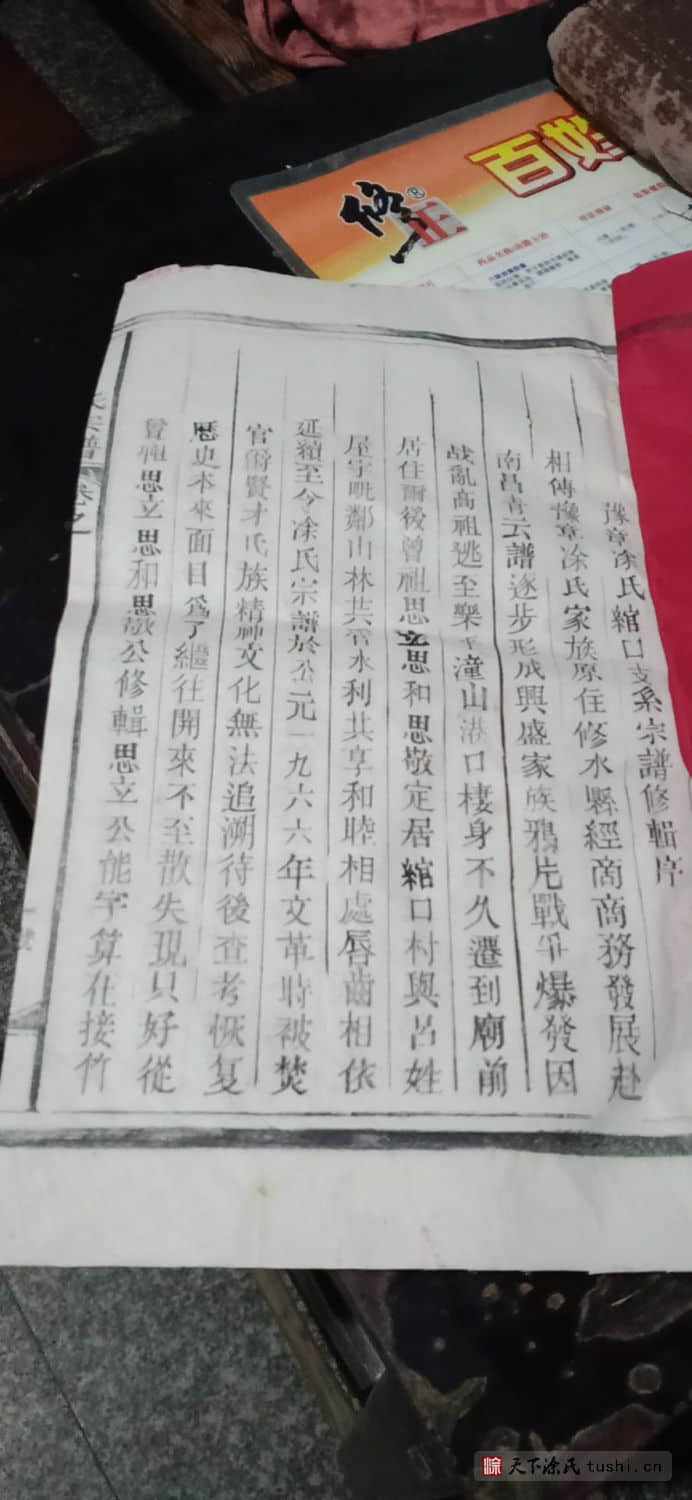 修正®
百姓
药品名称/功能主治
豫章凃氏綰口支系宗譜修輯序
相傳豫章凃氏家族原住修水縣經商商務發展赴
南昌青云譜逐步形成興盛家族鴉片戰爭爆發因
战亂高祖逃至樂平潼山港口棲身不久遷到廟前
居住爾後曾祖思立思和思敬定居綰口村與呂姓
屋宇毗鄰山林共管水利共享和睦相處唇齒相依
延續至今凃氏宗譜於公元一九六六年文革時被焚
官爵賢才氏族精神文化無法追溯待後查考恢复
歷史本來面目爲了繼往開來不至散失現只好從
曾祖思立思和思敬公修輯思立公能字算在接竹
氏宗譜 卷之一
凃 天下凃氏 tushi.cn